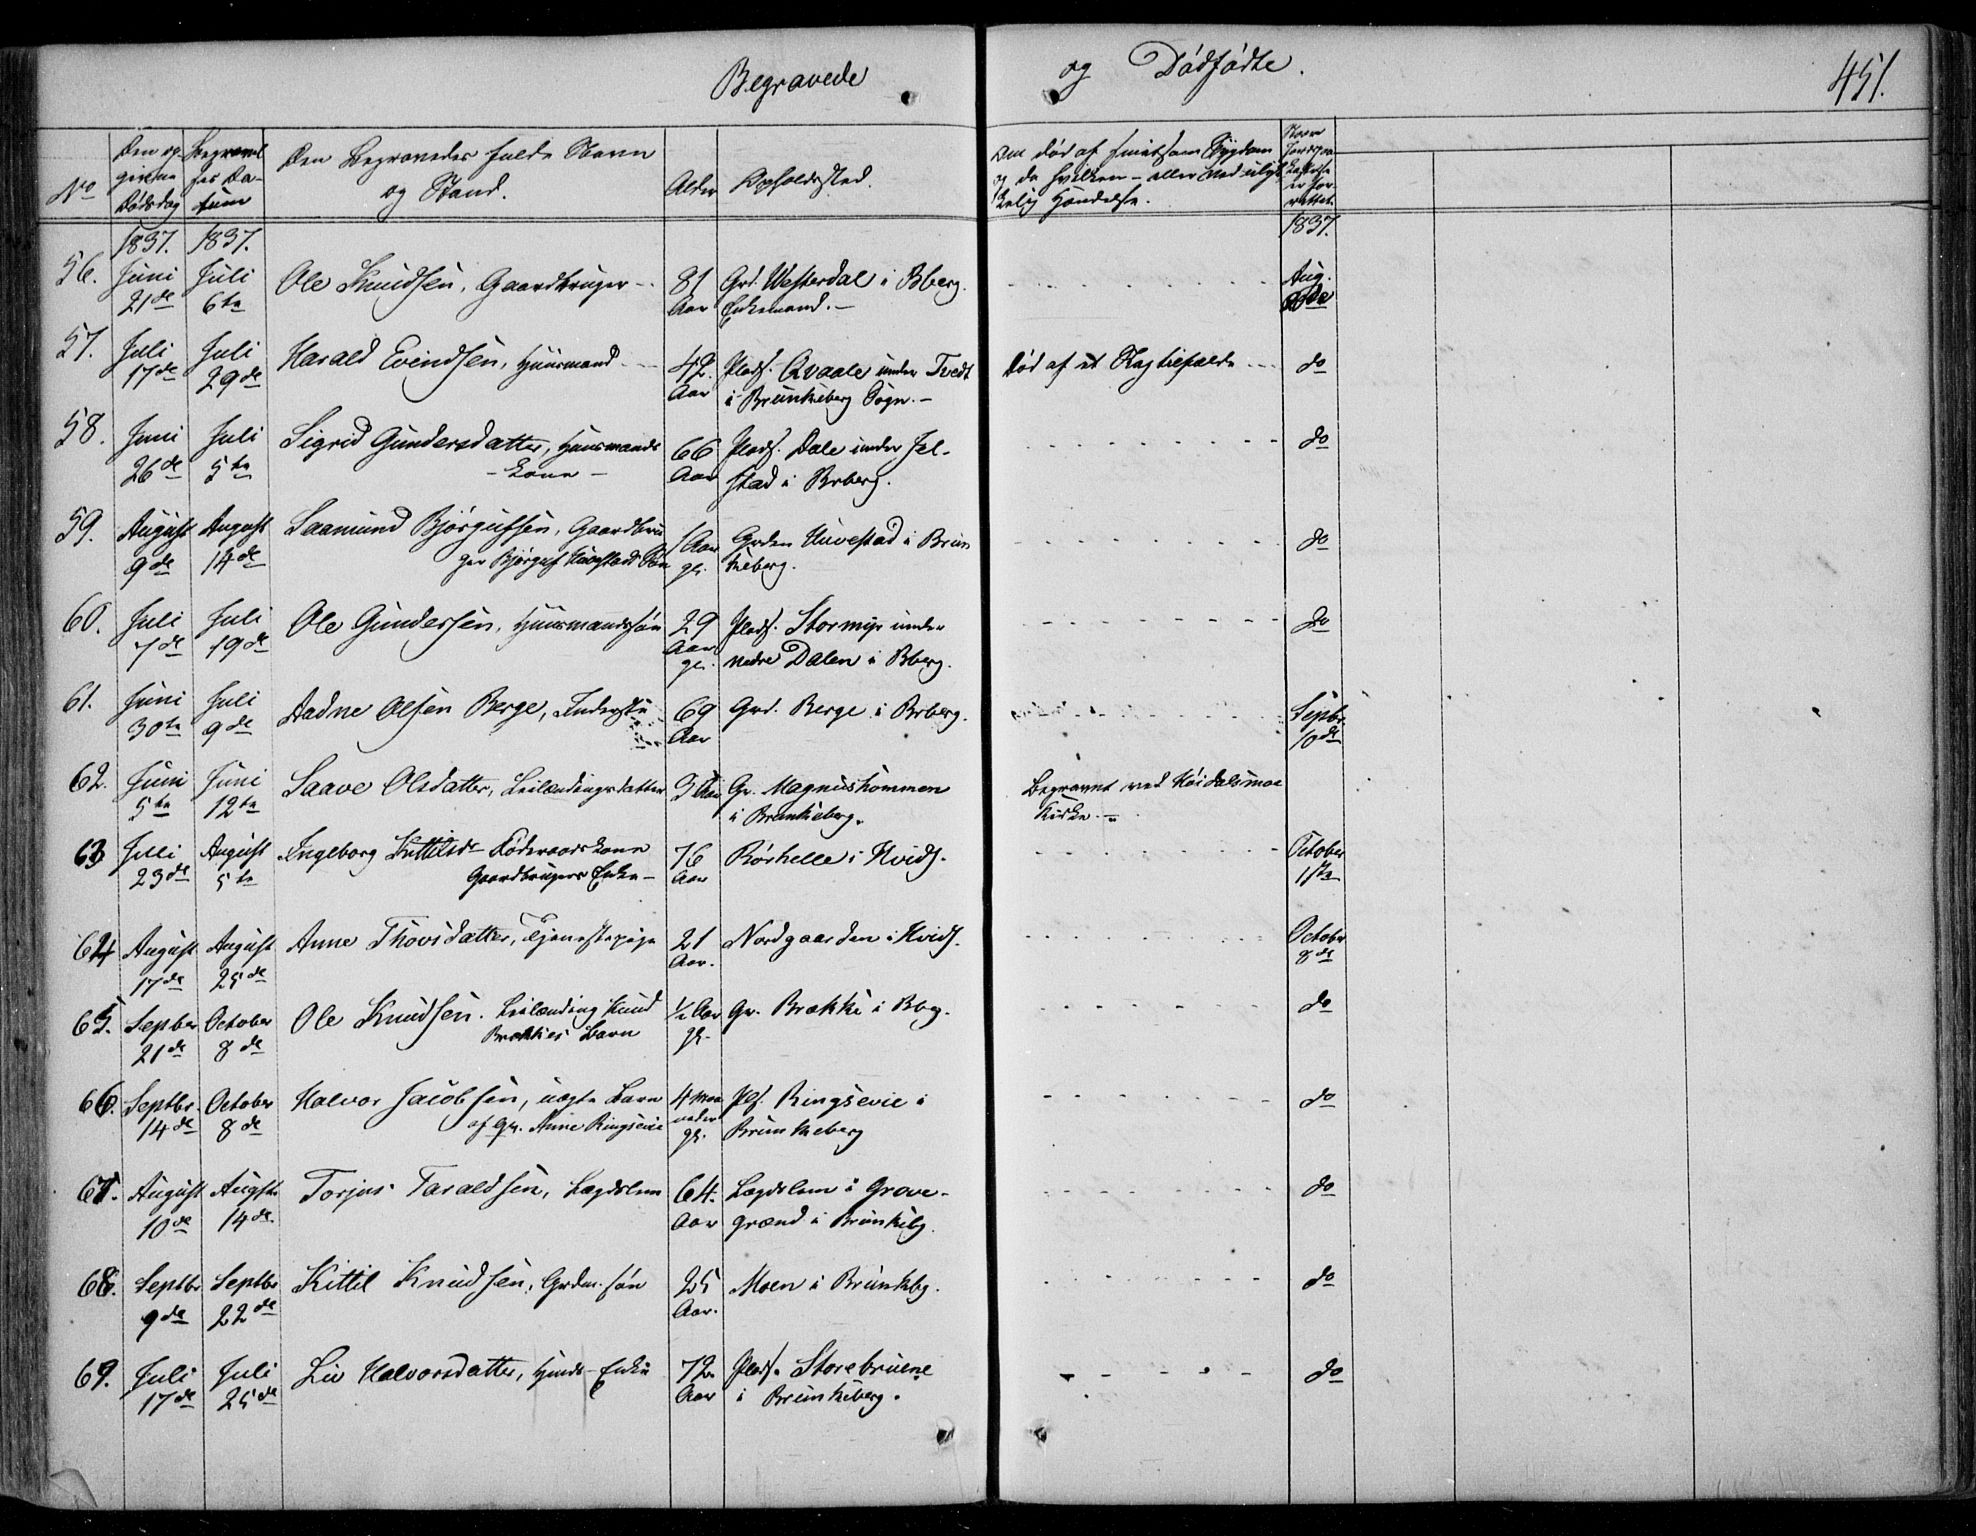 Begravede og Dødfødte.
451.
No
Den opgivne Dødsdag
Begravelses Datum
Den Begravedes fulde Navn og Stand.
Alder
Opholdssted.
Om død af smitsom Sygdom og da hvilken – eller ved ulykkelig Hændelse.
Naar Jordpaakastelse er forrettet.
1837. 1837. 1837.
56. Juni 21de Juli 6te Ole Knudsen, Gaardbruger 81 Aar Grd. Westerdal i Bberg. Enkemand. – Aug.
57. Juli 17de Juli 29de Harald Evindsen, Huusmand 42. Aar Plads. Qvaale under Tvedt i Brunkeberg Sogn. – Død af et do
58. Juni 26de Juli 5te Sigrid Gundersdatter, Huusmands Kone – 66 Aar Plads. Dale under Jelstad i Brberg. do
59. August 9de August 14de Saamund Bjørgufsen, Gaardbruger Bjørguf Huvestads Søn 1 Aar gl. Grden Huvestad i Brunkeberg. do
60. Juli 7de Juli 19de Ole Gundersen, Huusmandssøn 29 Aar gl. Plads. Stormyr under nedre Dalen i Bberg. do
61. Juni 30te Juli 9de Aadne Olsen Berge, 69 Aar Grd. Berge i Brberg. Septbr 10de
62. Juni 5te Juni 12te Saave Olsdatter, Leilændingsdatter 3 Aar Gr. Magnushommen i Brunkeberg. Begravet ved Høidalsmoe Kirke. –
63 Juli 23de August 5te Ingeborg Kittilsdr Føderaadskone Gaardbrugers Enke – 76 Aar Rørhelle i Hvids. October 1ste
64 August 17de August 25de Anne Thovsdatter, Tjenestepige 21 Aar. Nordgaarden i Hvids. October 8de
65. Septber 21de October 8de Ole Knudsen. Leilænding Knud Brækkes Barn ½ Aar gl. Gr. Brække i Bbg. do
66. Septbr. 14de October 8de Halvor Jacobsen, uægte Barn af Anne Ringsevie 4 Maaneder gl. Pls. Ringsevie i Brunkeberg do
67. August 10de Augst 14de. Torjus Taraldsen, Lægdslem 64. Aar Lægdslem i Grovegrænd i Brunkebg. do
68. Septbr 9de Septbr 22de Kittil Knudsen, Grdm. søn 25 Aar. Moen i Brunkbg. do
69. Juli 17de Juli 25de Liv Halvorsdatter, Hmds Enke 72. Aar Plads. Storebruene i Brunkeberg. do